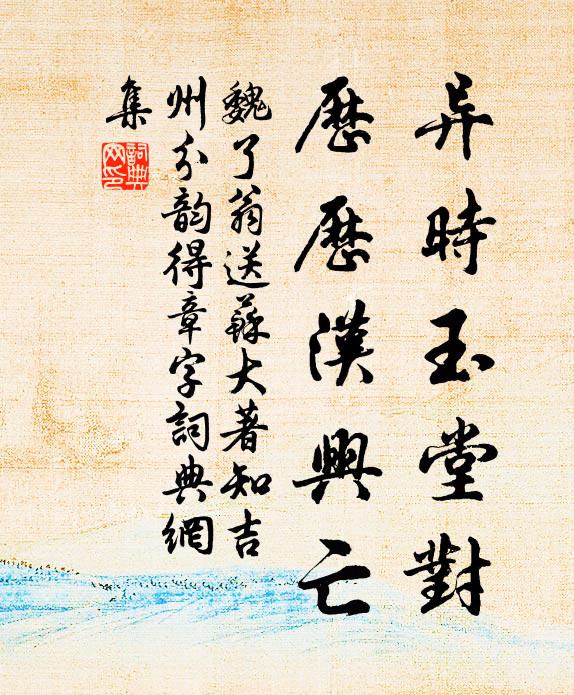 异時玉堂對
歷歷漢興亡
魏了翁送蘇大著知吉
州分韵得章字詞典網
集
詞典網印